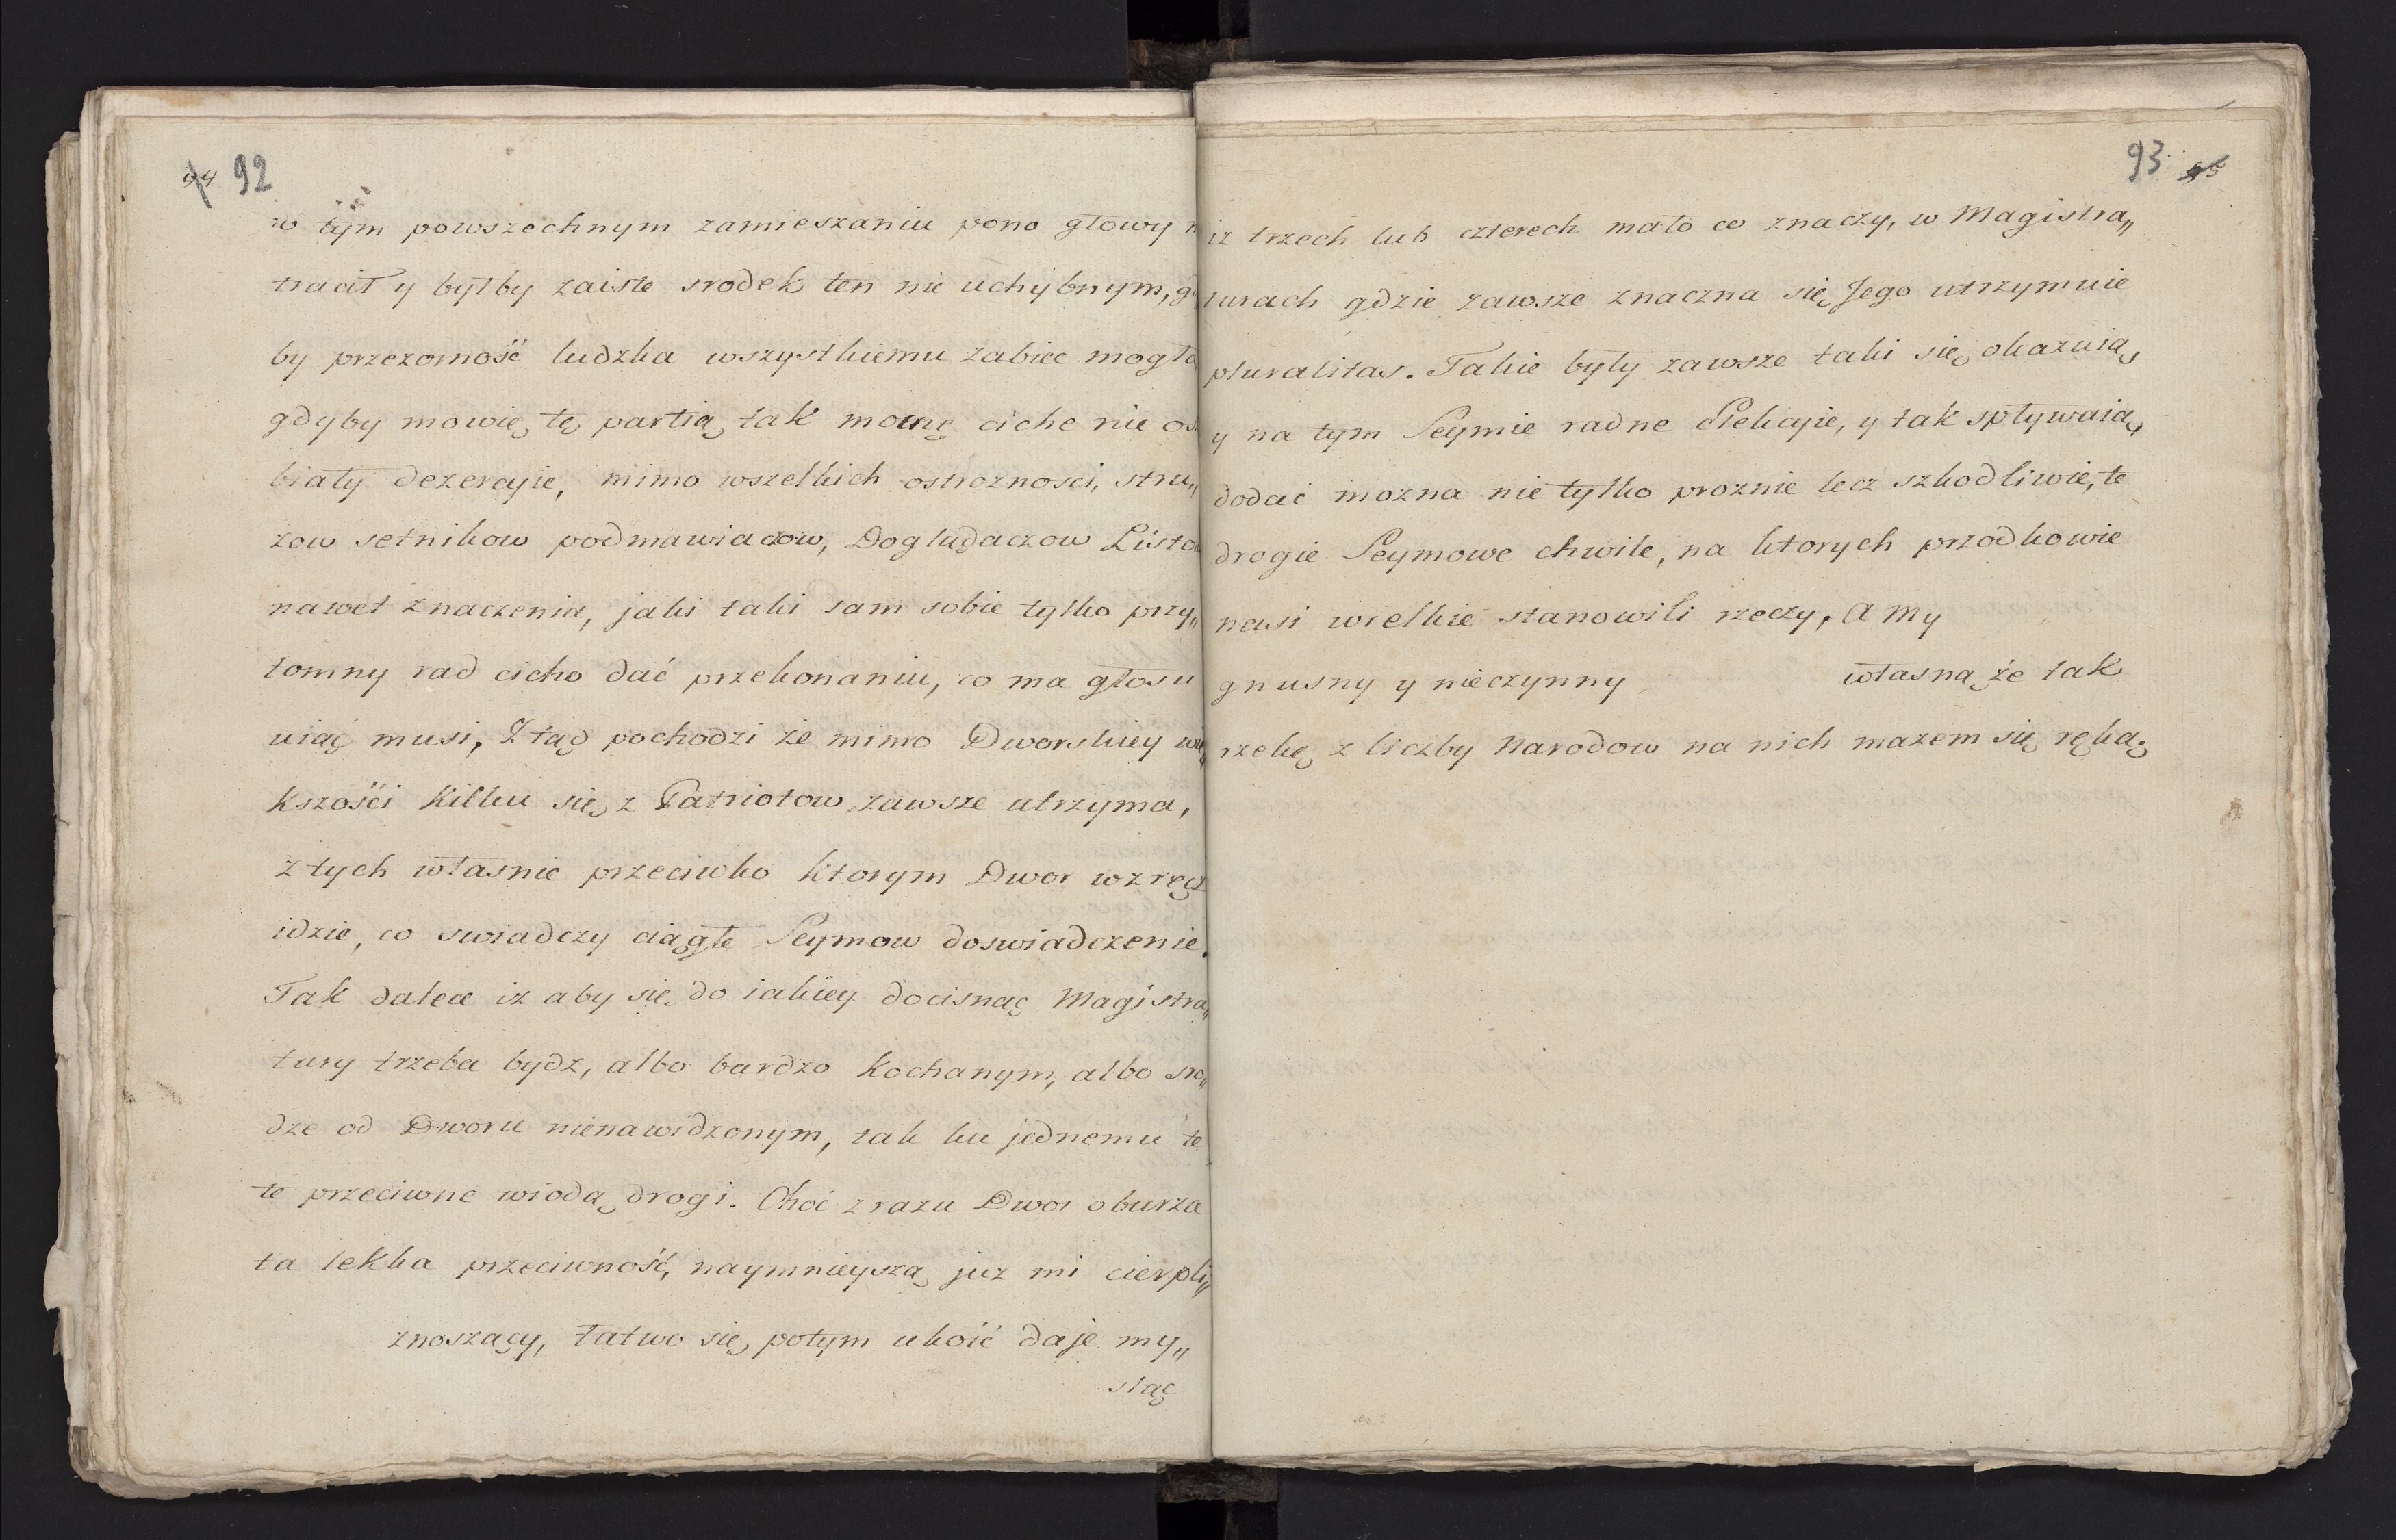 94 92
w tym powszechnym zamieszaniu pono głowy n
tracił y byłby zaiste srodek ten nie uchybnym, gd
by przezorność ludzka wszystkiemu zabiec mogła
gdyby mowię tę partią tak mocnę ciche nie os
biały dezercyie, mimo wszelkich ostroznosci, stru„
zow setnikow podmawiaczow, Doglądaczow Listow
nawet znaczenia, jaki taki sam sobie tylko przy„
tomny rad cicho dać przekonaniu, co ma głosu
uiąć musi, Ztąd pochodzi że mimo Dworskiey wię
kszości kilku się z Patriotow zawsze utrzyma,
z tych własnie przeciwko ktorym Dwor wzręcz
idzie, co swiadczy ciągłe Seymow doswiadczenie.
Tak dalece iz aby się do iakiey docisnąć Magistra„
tury trzeba bydz, albo bardzo kochanym, albo sro„
dze od Dworu nienawidzonym, tak ku jednemu te
te przeciwne wiodą drogi. Choć zrazu Dwor oburza
ta lekka przeciwność, naymnieyszą juz mi cierpli„
znoszący, łatwo się potym ukoić daje my„
sląc
93 95
iz trzech lub czterech mało co znaczy, w Magistra„
turach gdzie zawsze znaczna się Jego utrzymuie
pluralitas. Takie były zawsze taki się okazuią
y na tym Seymie radne Elekcyie, y tak spływaią
dodać mozna nie tylko proznie lecz szkodliwie, te
drogie Seymowe chwile, na ktorych przodkowie
nasi wielkie stanowili rzeczy, A my
gnusny y nieczynny własną że tak
rzekę z liczby Narodow na nich mazem się ręką.